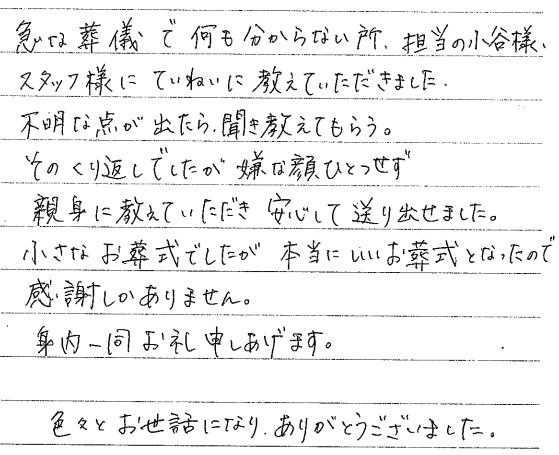 急な葬儀で何も分からない所、担当の小谷様、
スタッフ様にていねいに教えていただきました.
不明な点が出たら、聞き教えてもらう。
そのくり返しでしたが嫌な顔ひとつせず
親身に教えていただき安心して送り出せました。
小さなお葬式でしたが本当にいいお葬式となったので
感謝しかありません。
身内一同お礼申しあげます。
色々とお世話になり、ありがとうございました。